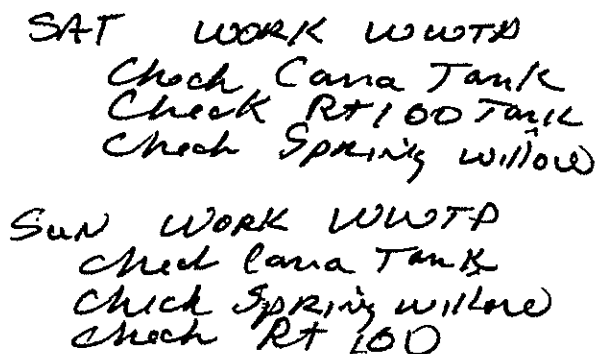 SAT WORK WWTP
Check Cana Tank
Check Rt 100 Tank
Check Spring willow
SUN WORK WWTP
Check Cana Tank
Check Spring willow
Check Rt 100